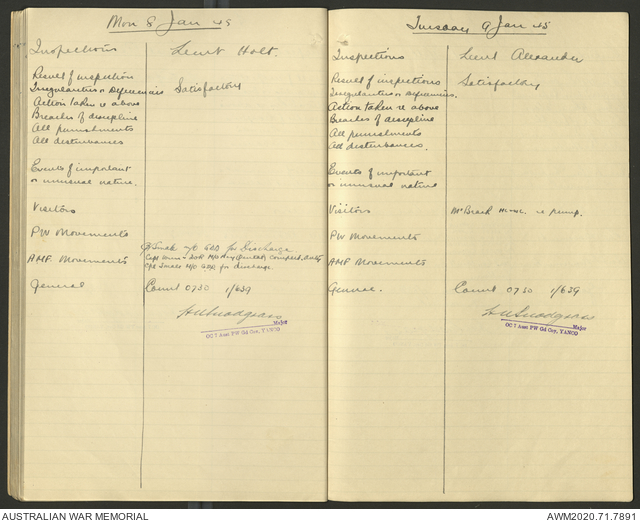 Mon 8 Jan 45
Inspections Lieut Holt
Result of inspection
Irregularities or Deficiencies Satisfactory
Action taken re above
Breaches of discipline
All punishments
All disturbances
Events of important
or unusual nature.
Visitors
PW Movements
for Discharge
AMF. Movements
Cpl for discharge.
General Count 0730 1/639
H A Snodgrass
Major
OC 7 Aust PW Gd Coy, YANCO
Tuesday 9 Jan 45
Inspections Lieut Alexander
Result of inspections Satisfactory
Irregularities or Deficiencies.
Action taken re above
Breaches of discipline
All punishments
All disturbances.
Events of important
or unusual nature
Visitors re pump.
PW Movements
AMF Movements
General. Count 0730 1/639
H A Snodgrass
Major
OC 7 Aust PW Gd Coy, YANCO
AUSTRALIAN WAR MEMORIAL AWM2020.71.7891